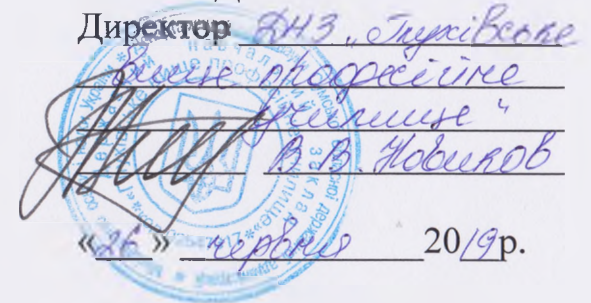 Директор ДНЗ „Глухівське
вище професійне
училище"
В. В. Новиков
«26» червня 2019р.